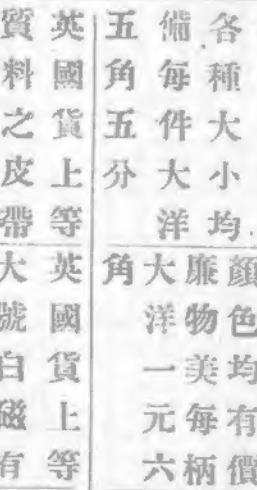 各種大小均
備每件大洋
五角五分
英國貨上等
質料之皮帶
顏色均有價
廉物美每柄
大洋一元六
角
英國貨上等
大號白磁有